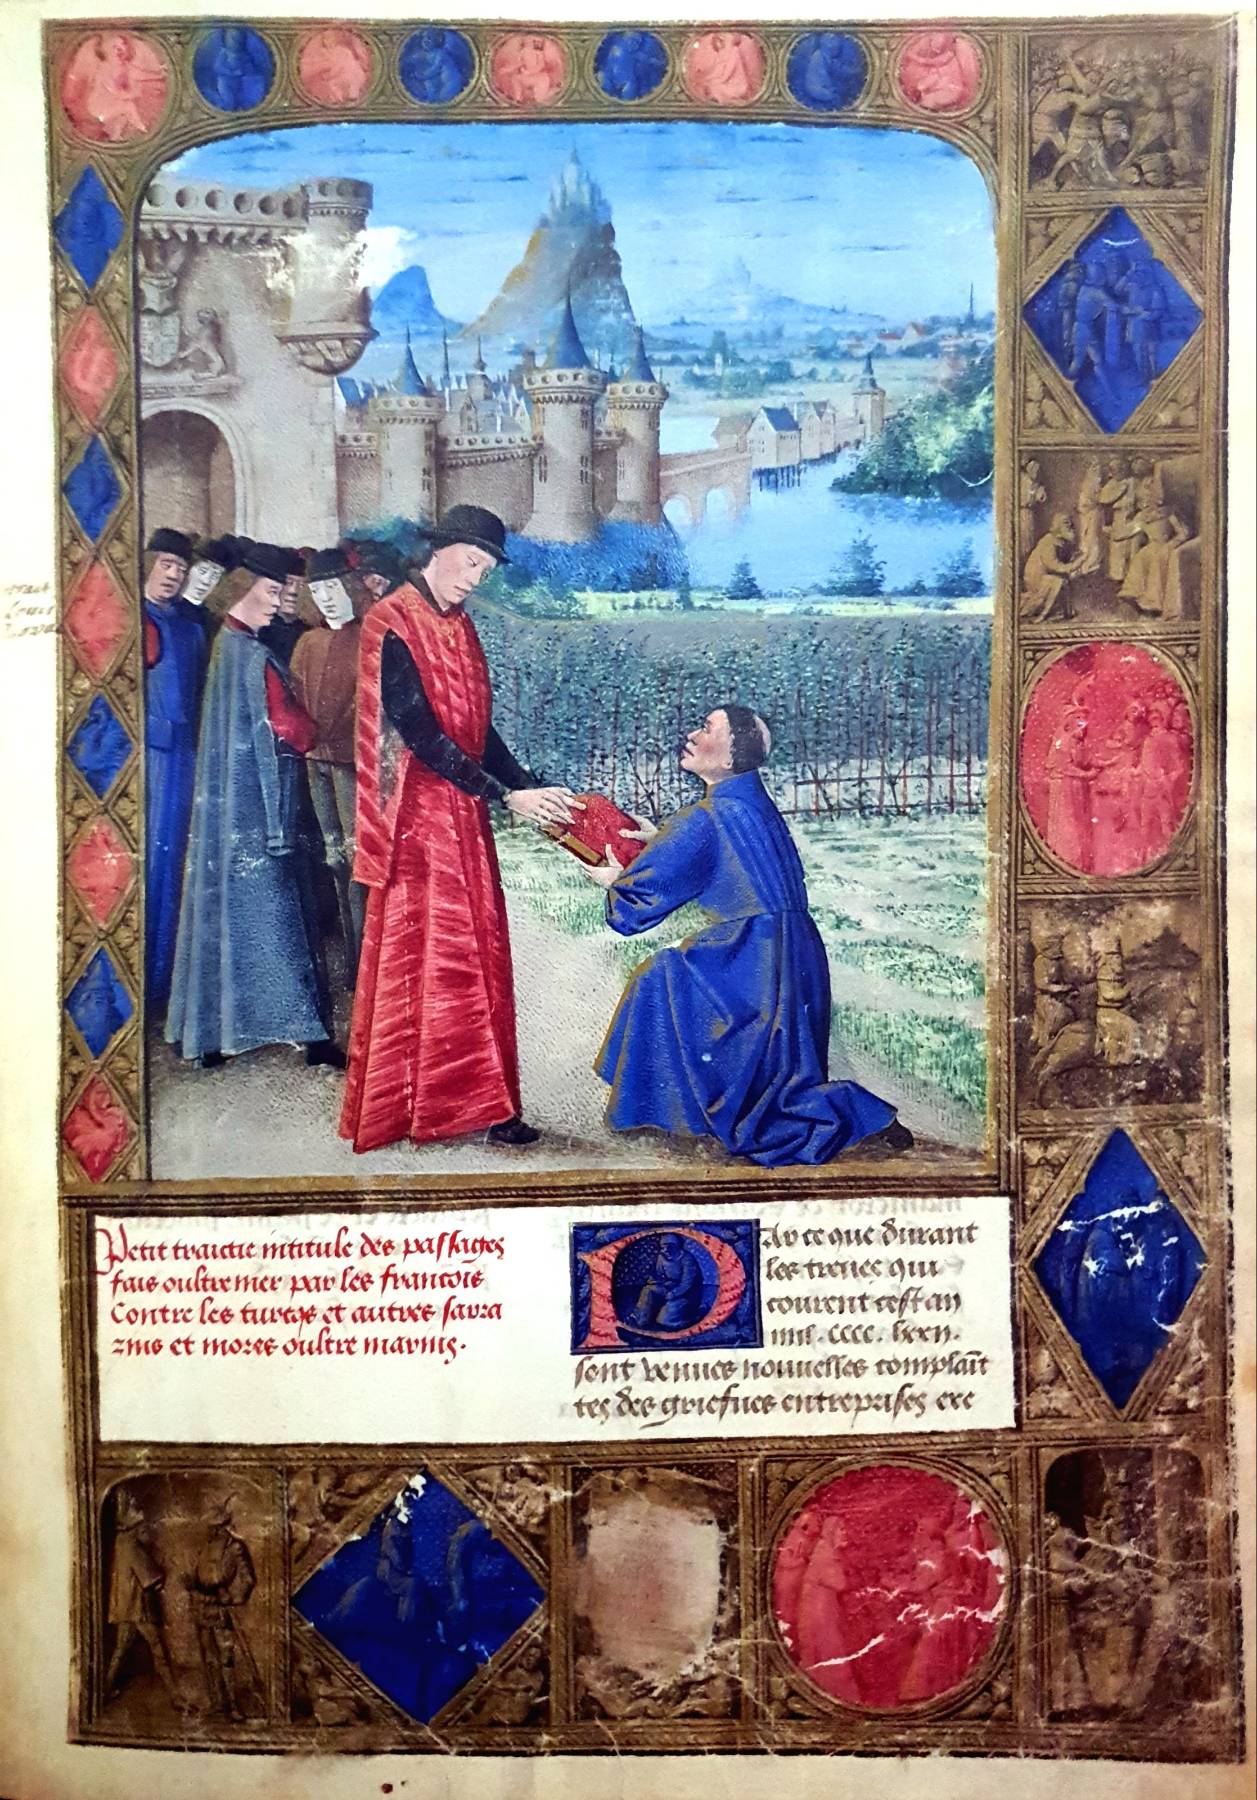 Petit traictie intitule des passages
fais oultre mer par les francois
Contre les turcqs et autres sarra
zins et mores oultre marins.
Par ce que durant
les treues qui
courent cest an
mil. cccc. lxxii.
sont venues nouuelles complain
tes des griefues entreprises exe